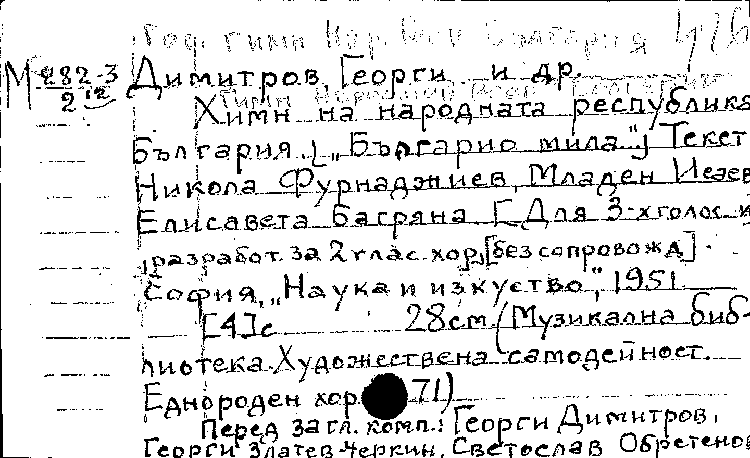 Гос. гимн Нар. Респ Болгария
М 282-3 Димитров Георги и др.
2 12 Гимн Народной Респ
Химн на народната република
България. [„Българио мила”] Текст
Никола Фурнаджиев, Младен Исаев
Елисавета Багряна [Для 3-х голос.
разработ. за 2 глас. хор, [без сопровожд].
София, „Наука и изкуство”, 1951
[4] с 28 см. (Музикална биб-
лиотека. Художествена самодейност.
Еднороден хор 71)
Перед загл. комп.: Георги Димитров,
Георги Златев-Черкин, Светослав Обретенов